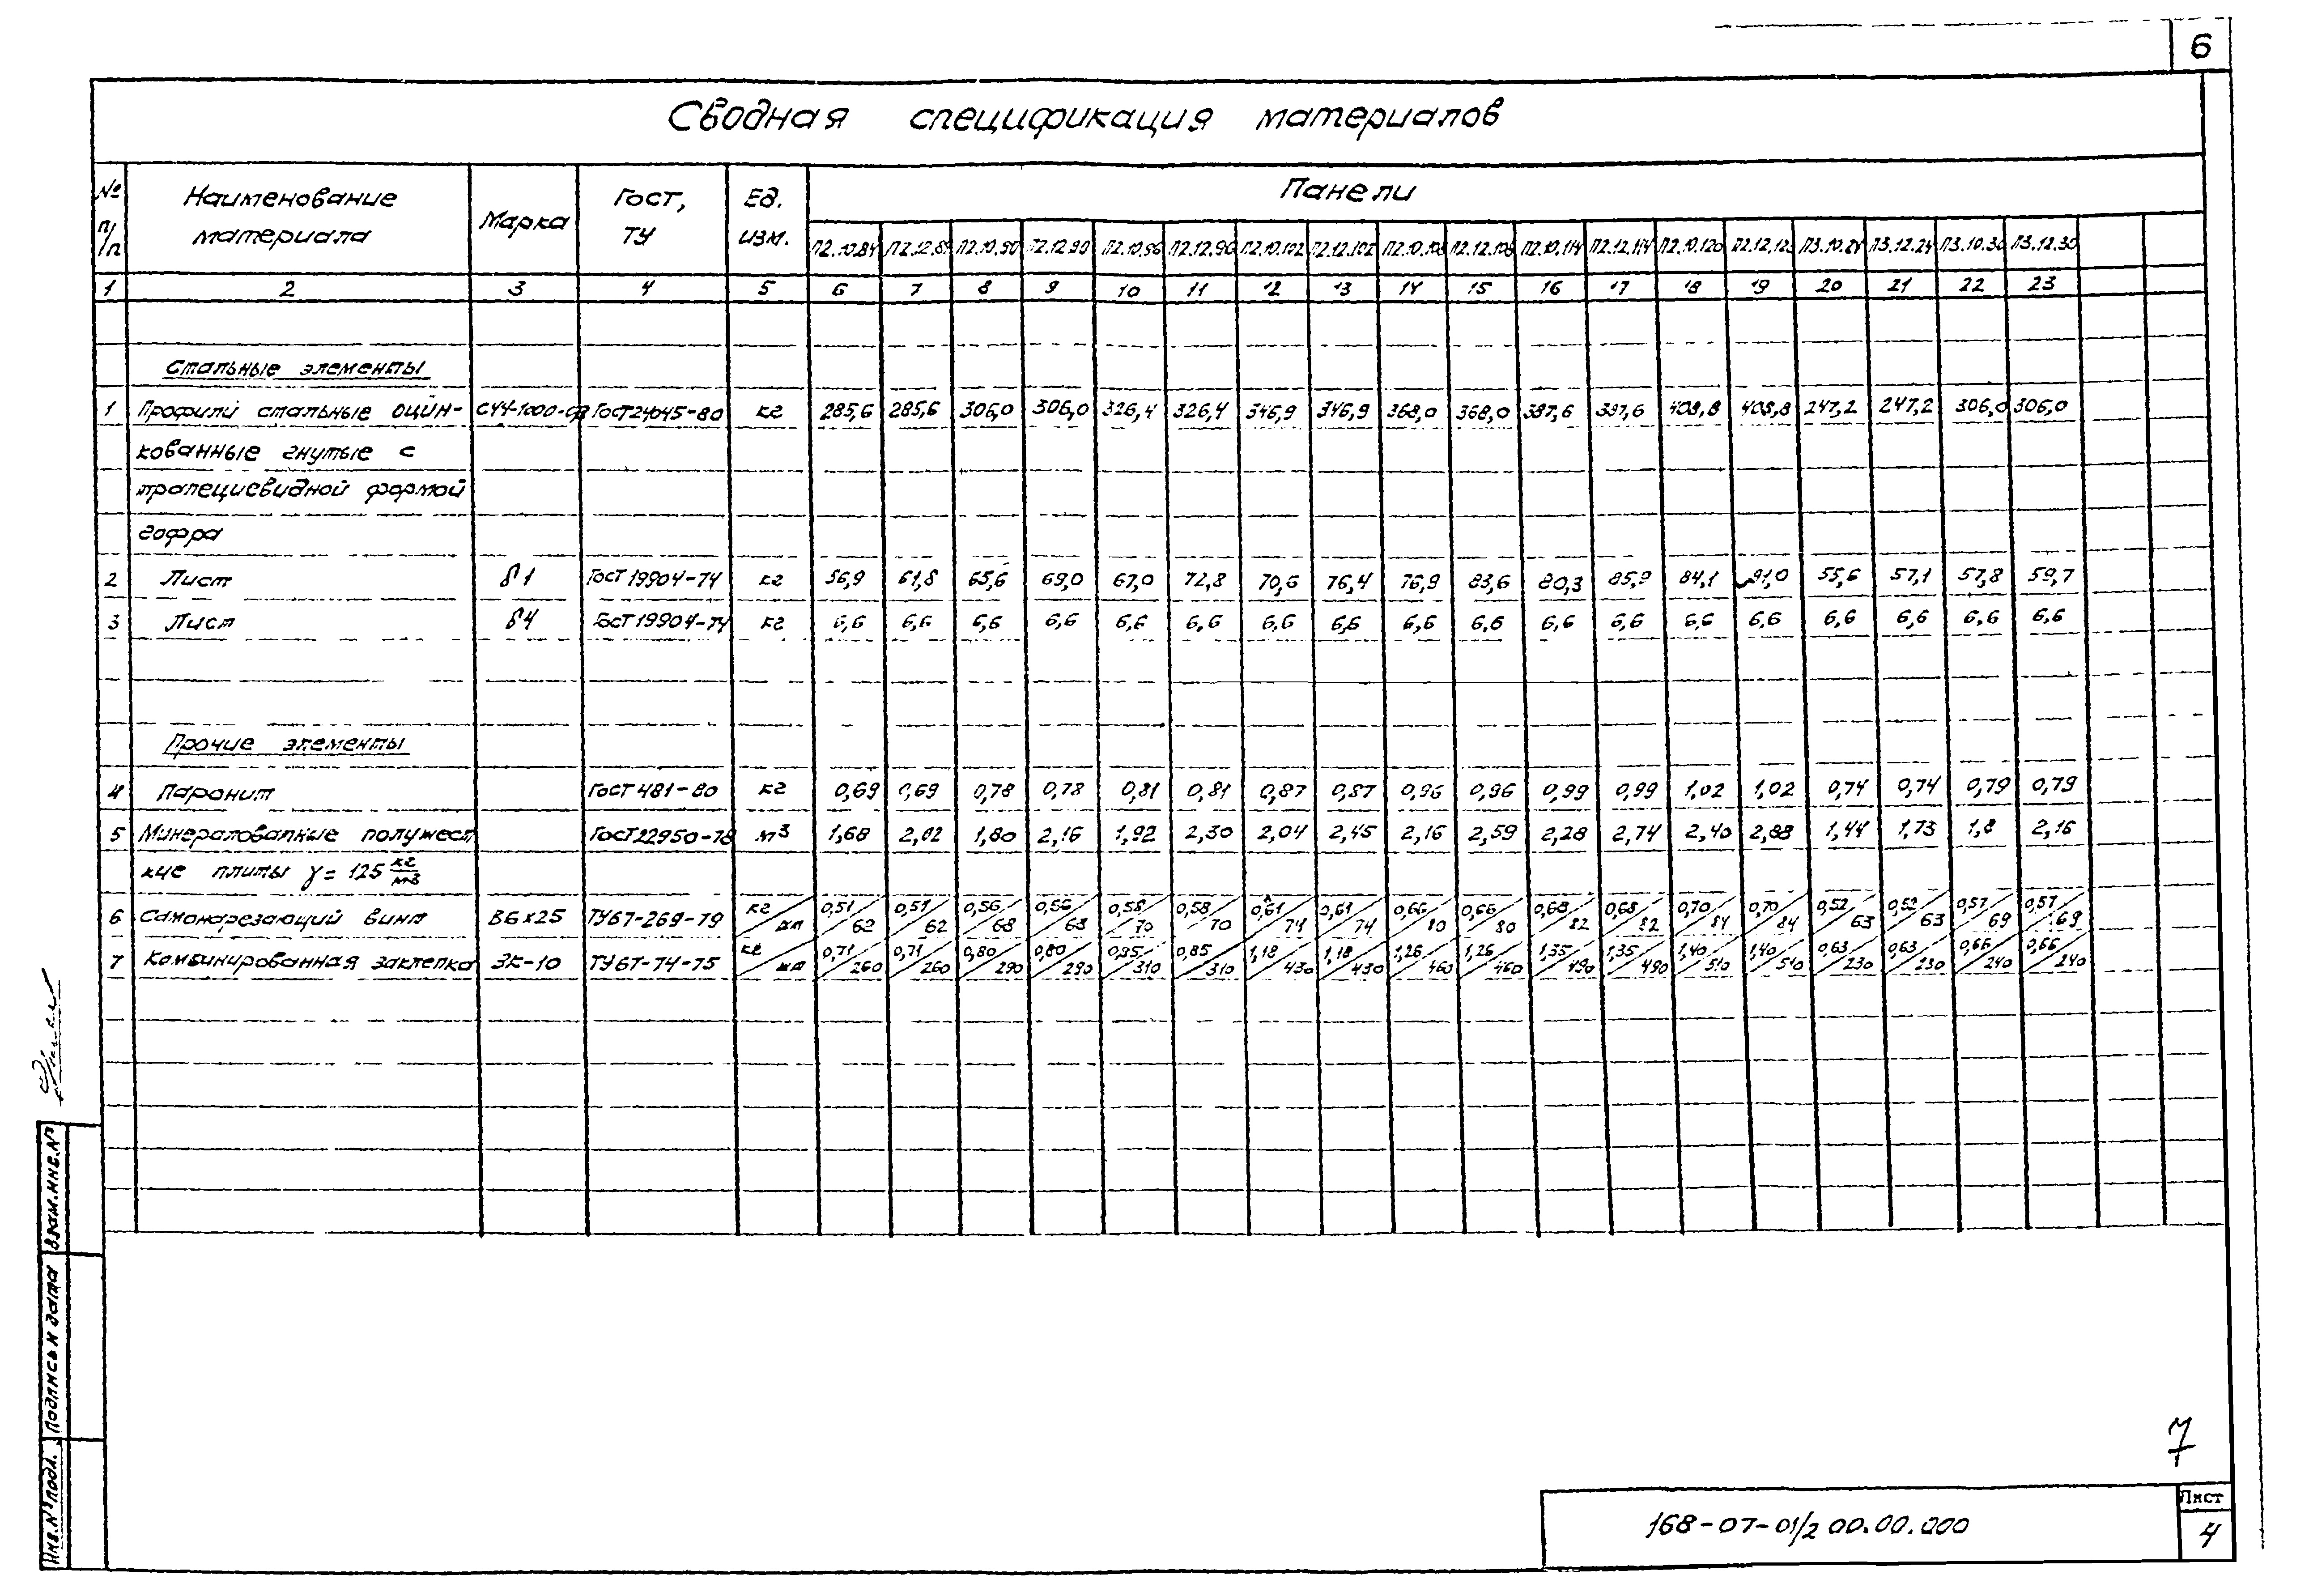 6
Сводная спецификация материалов
№ п/п Наименование материала Марка Гост, ТУ Ед. изм. Панели
П2.10.84 П2.12.84 П2.10.90 П2.12.90 П2.10.96 П2.12.96 П2.10.102 П2.12.102 П2.10.108 П2.12.108 П2.10.114 П2.12.114 П2.10.120 П2.12.120 П3.10.24 П3.12.24 П3.10.30 П3.12.30
1 2 3 4 5 6 7 8 9 10 11 12 13 14 15 16 17 18 19 20 21 22 23
Стальные элементы
1 Профили стальные оцин- С44-1000-0,8 Гост 24045-80 кг 285,6 285,6 306,0 306,0 326,4 326,4 346,9 346,9 368,0 368,0 387,6 387,6 408,8 408,8 247,2 247,2 306,0 306,0
кованные гнутые с
трапециевидной формой
гофра
2 Лист δ1 Гост 19904-74 кг 56,9 61,8 65,6 69,0 67,0 72,8 70,6 76,4 76,9 83,6 80,3 85,9 84,1 91,0 55,6 57,1 57,8 59,7
3 Лист δ4 Гост 19904-74 кг 6,6 6,6 6,6 6,6 6,6 6,6 6,6 6,6 6,6 6,6 6,6 6,6 6,6 6,6 6,6 6,6 6,6 6,6
Прочие элементы
4 Паронит Гост 481-80 кг 0,69 0,69 0,78 0,78 0,81 0,81 0,87 0,87 0,96 0,96 0,99 0,99 1,02 1,02 0,74 0,74 0,79 0,79
5 Минераловатные полужест Гост 22950-78 м3 1,68 2,02 1,80 2,16 1,92 2,30 2,04 2,45 2,16 2,59 2,28 2,74 2,40 2,88 1,44 1,73 1,8 2,16
кие плиты γ = 125 кг/м3
6 Самонарезающий винт В6х25 ТУ67-269-79 кг/шт 0,51/62 0,51/62 0,56/68 0,56/68 0,58/70 0,58/70 0,61/74 0,61/74 0,66/80 0,66/80 0,68/82 0,68/82 0,70/84 0,70/84 0,52/63 0,52/63 0,57/69 0,57/69
7 Комбинированная заклепка ЗК-10 ТУ67-74-75 кг/шт 0,71/260 0,71/260 0,80/290 0,80/290 0,85/310 0,85/310 1,18/430 1,18/430 1,26/460 1,26/460 1,35/490 1,35/490 1,40/510 1,40/510 0,63/230 0,63/230 0,66/240 0,66/240
Взам. инв. №
Подпись и дата
Инв. № подл.
7
168-07-01/2 00.00.000
Лист
4